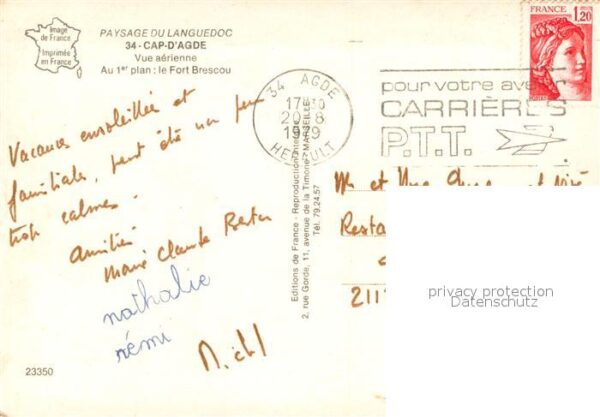 Image
de France
Imprimée
en France
PAYSAGE DU LANGUEDOC
34 - CAP-D'AGDE
Vue aérienne
Au 1er plan : le Fort Brescou
FRANCE
1,20
34 AGDE
17H30
20-8
1979
HERAULT
pour votre avenir
CARRIÈRES
P.T.T.
Vacances ensoleillées et
familiales, peut être un peu
trop calmes.
Amitiés
Marie Claude
nathalie
rémi
Editions de France - Reproduction
2, rue Gorde, 11, avenue de la Timone - MARSEILLE
Tél. 79.24.57
Mr et Mme
Resta
2117
privacy protection
Datenschutz
23350